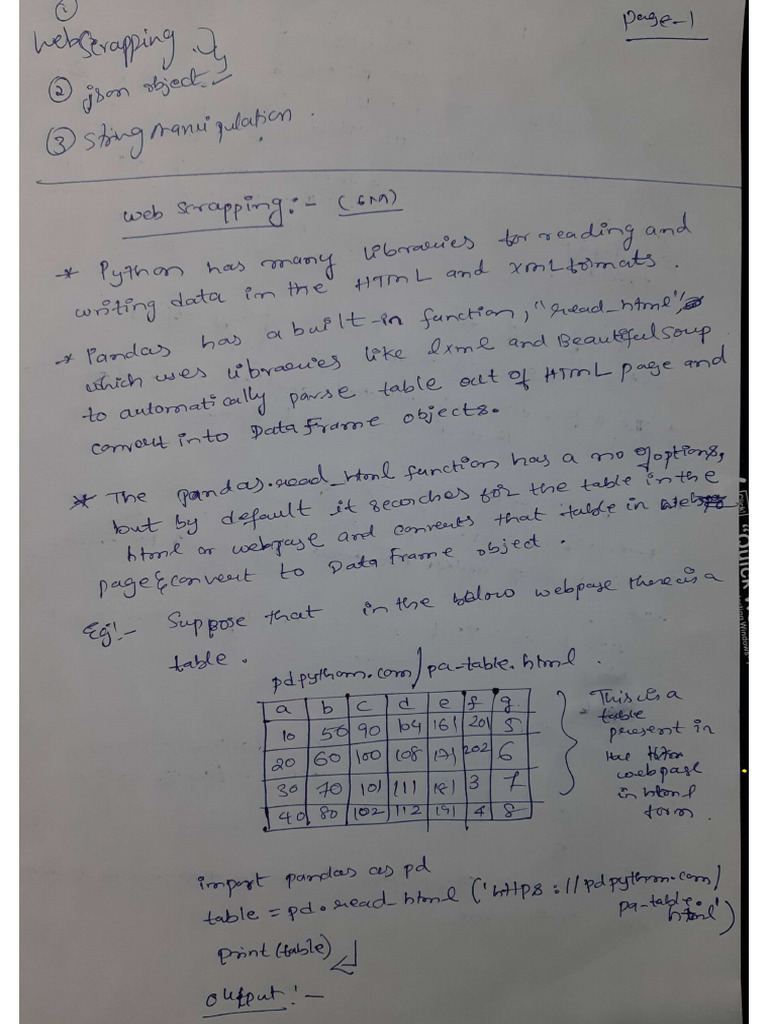 Page-1
①
Web Scrapping
② json object
③ String Manipulation.
Web Scrapping:- (6M)
* Python has many libraries for reading and
writing data in the HTML and XML formats.
* Pandas has a built-in function, "read_html",
which uses libraries like lxml and Beautiful Soup
to automatically parse table out of HTML page and
convert into DataFrame objects.
* The pandas.read_html function has a no of options,
but by default it searches for the table in the
html or webpage and converts that table in
page & convert to Data Frame object.
Eg:- Suppose that in the below webpage there is a
table.
pdpython.com/pa-table.html.
a b c d e f g
10 50 90 104 161 201 5
20 60 100 108 171 202 6
30 70 101 111 181 3 7
40 80 102 112 191 4 8
This is a
table
present in
the
webpage
in html
form.
import pandas as pd
table = pd.read_html('https://pdpython.com/
pa-table.
html')
print(table)
output:-